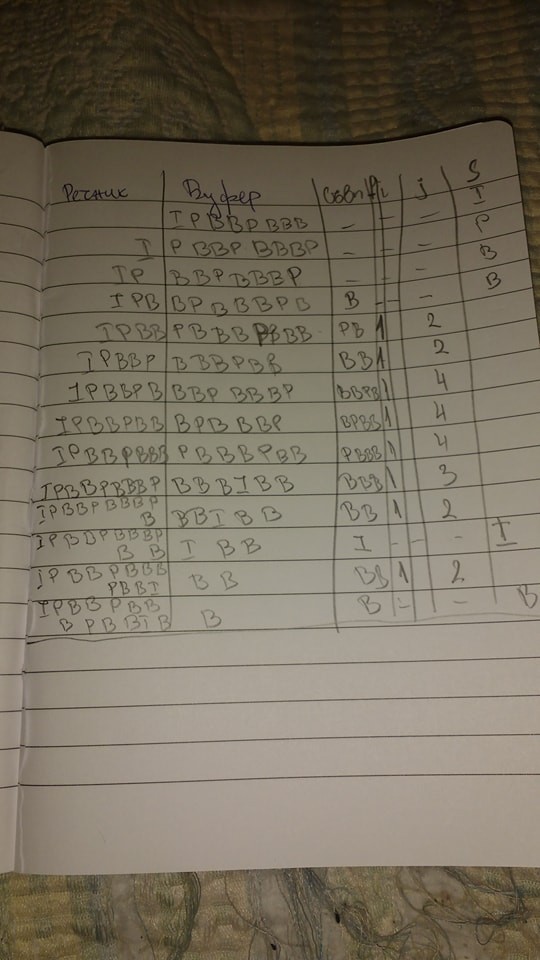 Речник Буфер i j S
I P B B P B B B - - - I
I P B B P B B B P - - - P
I P B B P B B B P - - - B
I P B B P B B B P B B - - B
I P B B P B B B B B P B 1 2
I P B B P B B B P B B B B 1 2
I P B B P B B B P B B B P B B P B 1 4
I P B B P B B B P B B B P B P B B 1 4
I P B B P B B B P B B B P B B P B B B 1 4
I P B B P B B B P B B B I B B B B B 1 3
I P B B P B B B P
B B B I B B B B 1 2
I P B B P B B B P
B B I B B I - - - I
I P B B P B B B
P B B I B B B B 1 2
I P B B P B B
B P B B I B B B - - B